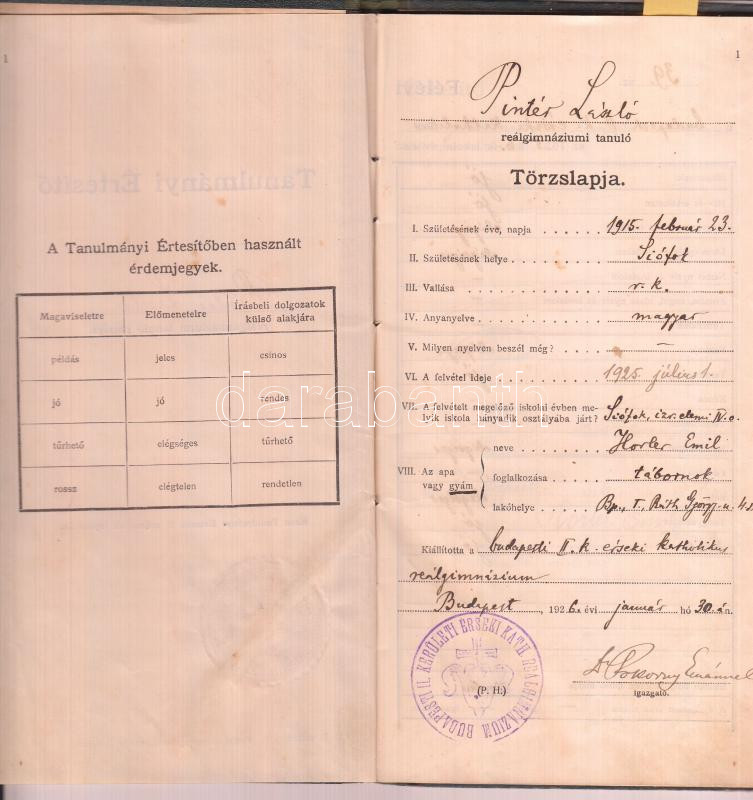 1
A Tanulmányi Értesítőben használt
érdemjegyek.
Magaviseletre Előmenetelre Írásbeli dolgozatok külső alakjára
példás jeles csinos
jó jó rendes
tűrhető elégséges tűrhető
rossz elégtelen rendetlen
1
Pintér László
reálgimnáziumi tanuló
Törzslapja.
I. Születésének éve, napja . . . . . 1915. február 23.
II. Születésének helye . . . . . . . Siófok
III. Vallása . . . . . . . . . . r. k.
IV. Anyanyelve . . . . . . . . . magyar
V. Milyen nyelven beszél még? . . . . —
VI. A felvétel ideje . . . . . . . 1925. július 1.
VII. A felvételt megelőző iskolai évben me-
lyik iskola hányadik osztályába járt? Siófok, izr. elemi IV. o.
neve Horler Emil
VIII. Az apa
vagy gyám
foglalkozása tábornok
lakóhelye Bp., I., Ráth György-u. 48
Kiállította a budapesti II. k. érseki katholikus
reálgimnázium
Budapest, 1926. évi január hó 30-án.
BUDAPESTI II. KERÜLETI ÉRSEKI KATH. REÁLGIMNÁZIUM
(P. H.)
Dr Pokorny Emánuel
igazgató.
darabanth